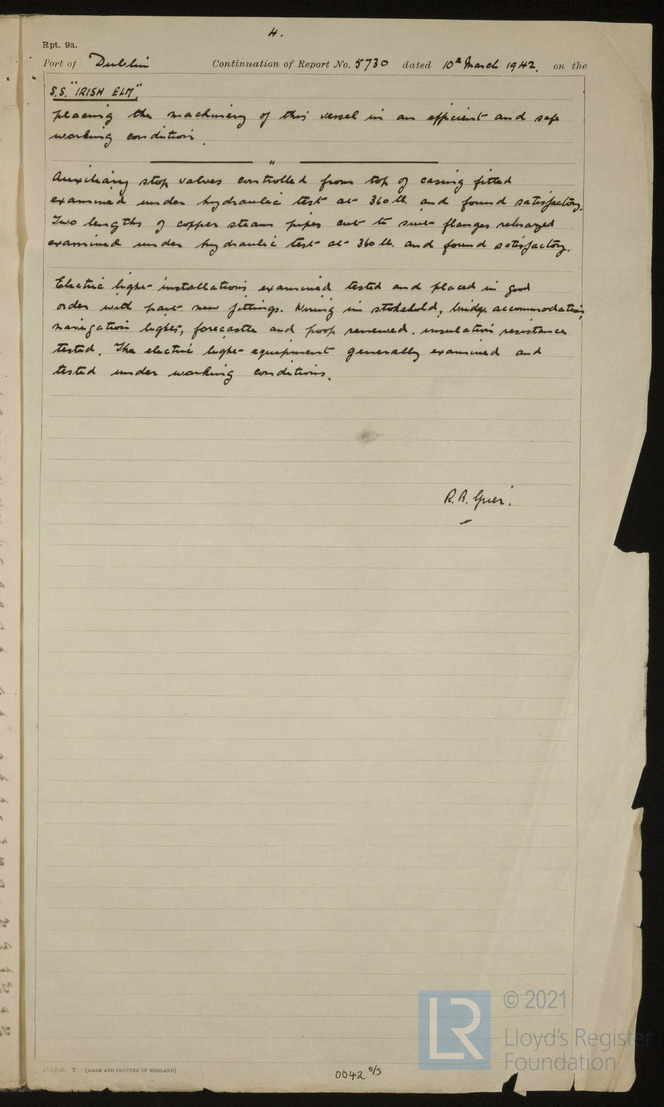 4.
Rpt. 9a.
Port of Dublin Continuation of Report No. 5730 dated 10th March 1942. on the
S.S. "IRISH ELM"
placing the machinery of this vessel in an efficient and safe
working condition.
"
Auxiliary stop valves controlled from top of casing fitted
examined under hydraulic test at 360 lb. and found satisfactory.
Two lengths of copper steam pipes cut to suit flanges rebrazed
examined under hydraulic test at 360 lb. and found satisfactory.
Electric light installations examined tested and placed in good
order with part new fittings. Wiring in stokehold, bridge accommodation,
navigation lights, forecastle and poop renewed. insulation resistance
tested. The electric light equipment generally examined and
tested under working conditions.
R.B.
T. (MADE AND PRINTED IN ENGLAND)
0042 5/5
LR
© 2021
Lloyd's Register
Foundation